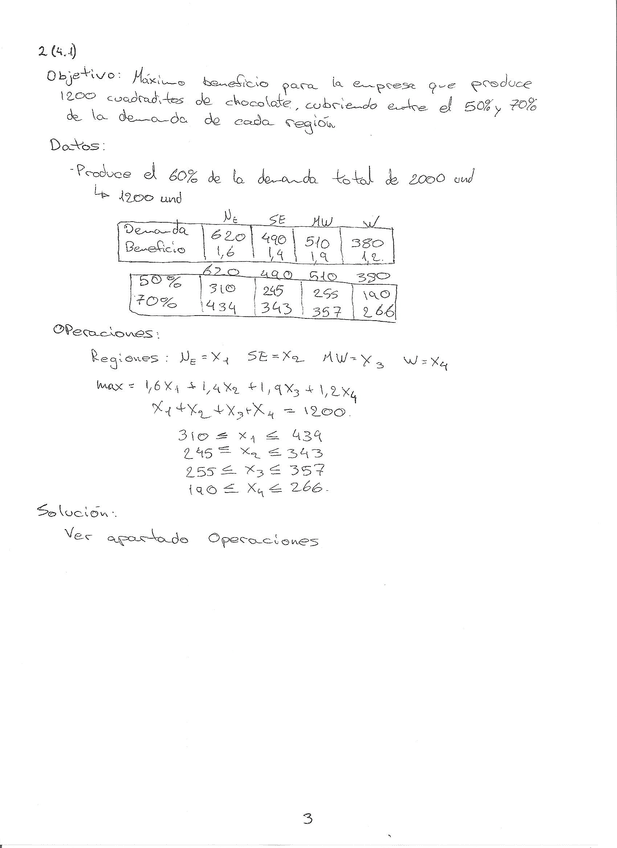 2 (4.1)
Objetivo: Máximo beneficio para la empresa que produce
1200 cuadraditos de chocolate, cubriendo entre el 50% y 70%
de la demanda de cada región
Datos:
- Produce el 60% de la demanda total de 2000 und
↳ 1200 und
NE SE MW W
Demanda 620 490 510 380
Beneficio 1,6 1,4 1,9 1,2
620 490 510 390
50% 310 245 255 190
70% 434 343 357 266
Operaciones:
Regiones: NE = X1 SE = X2 MW = X3 W = X4
max = 1,6X1 + 1,4X2 + 1,9X3 + 1,2X4
X1 + X2 + X3 + X4 = 1200.
310 ≤ X1 ≤ 434
245 ≤ X2 ≤ 343
255 ≤ X3 ≤ 357
190 ≤ X4 ≤ 266.
Solución:
Ver apartado Operaciones
3